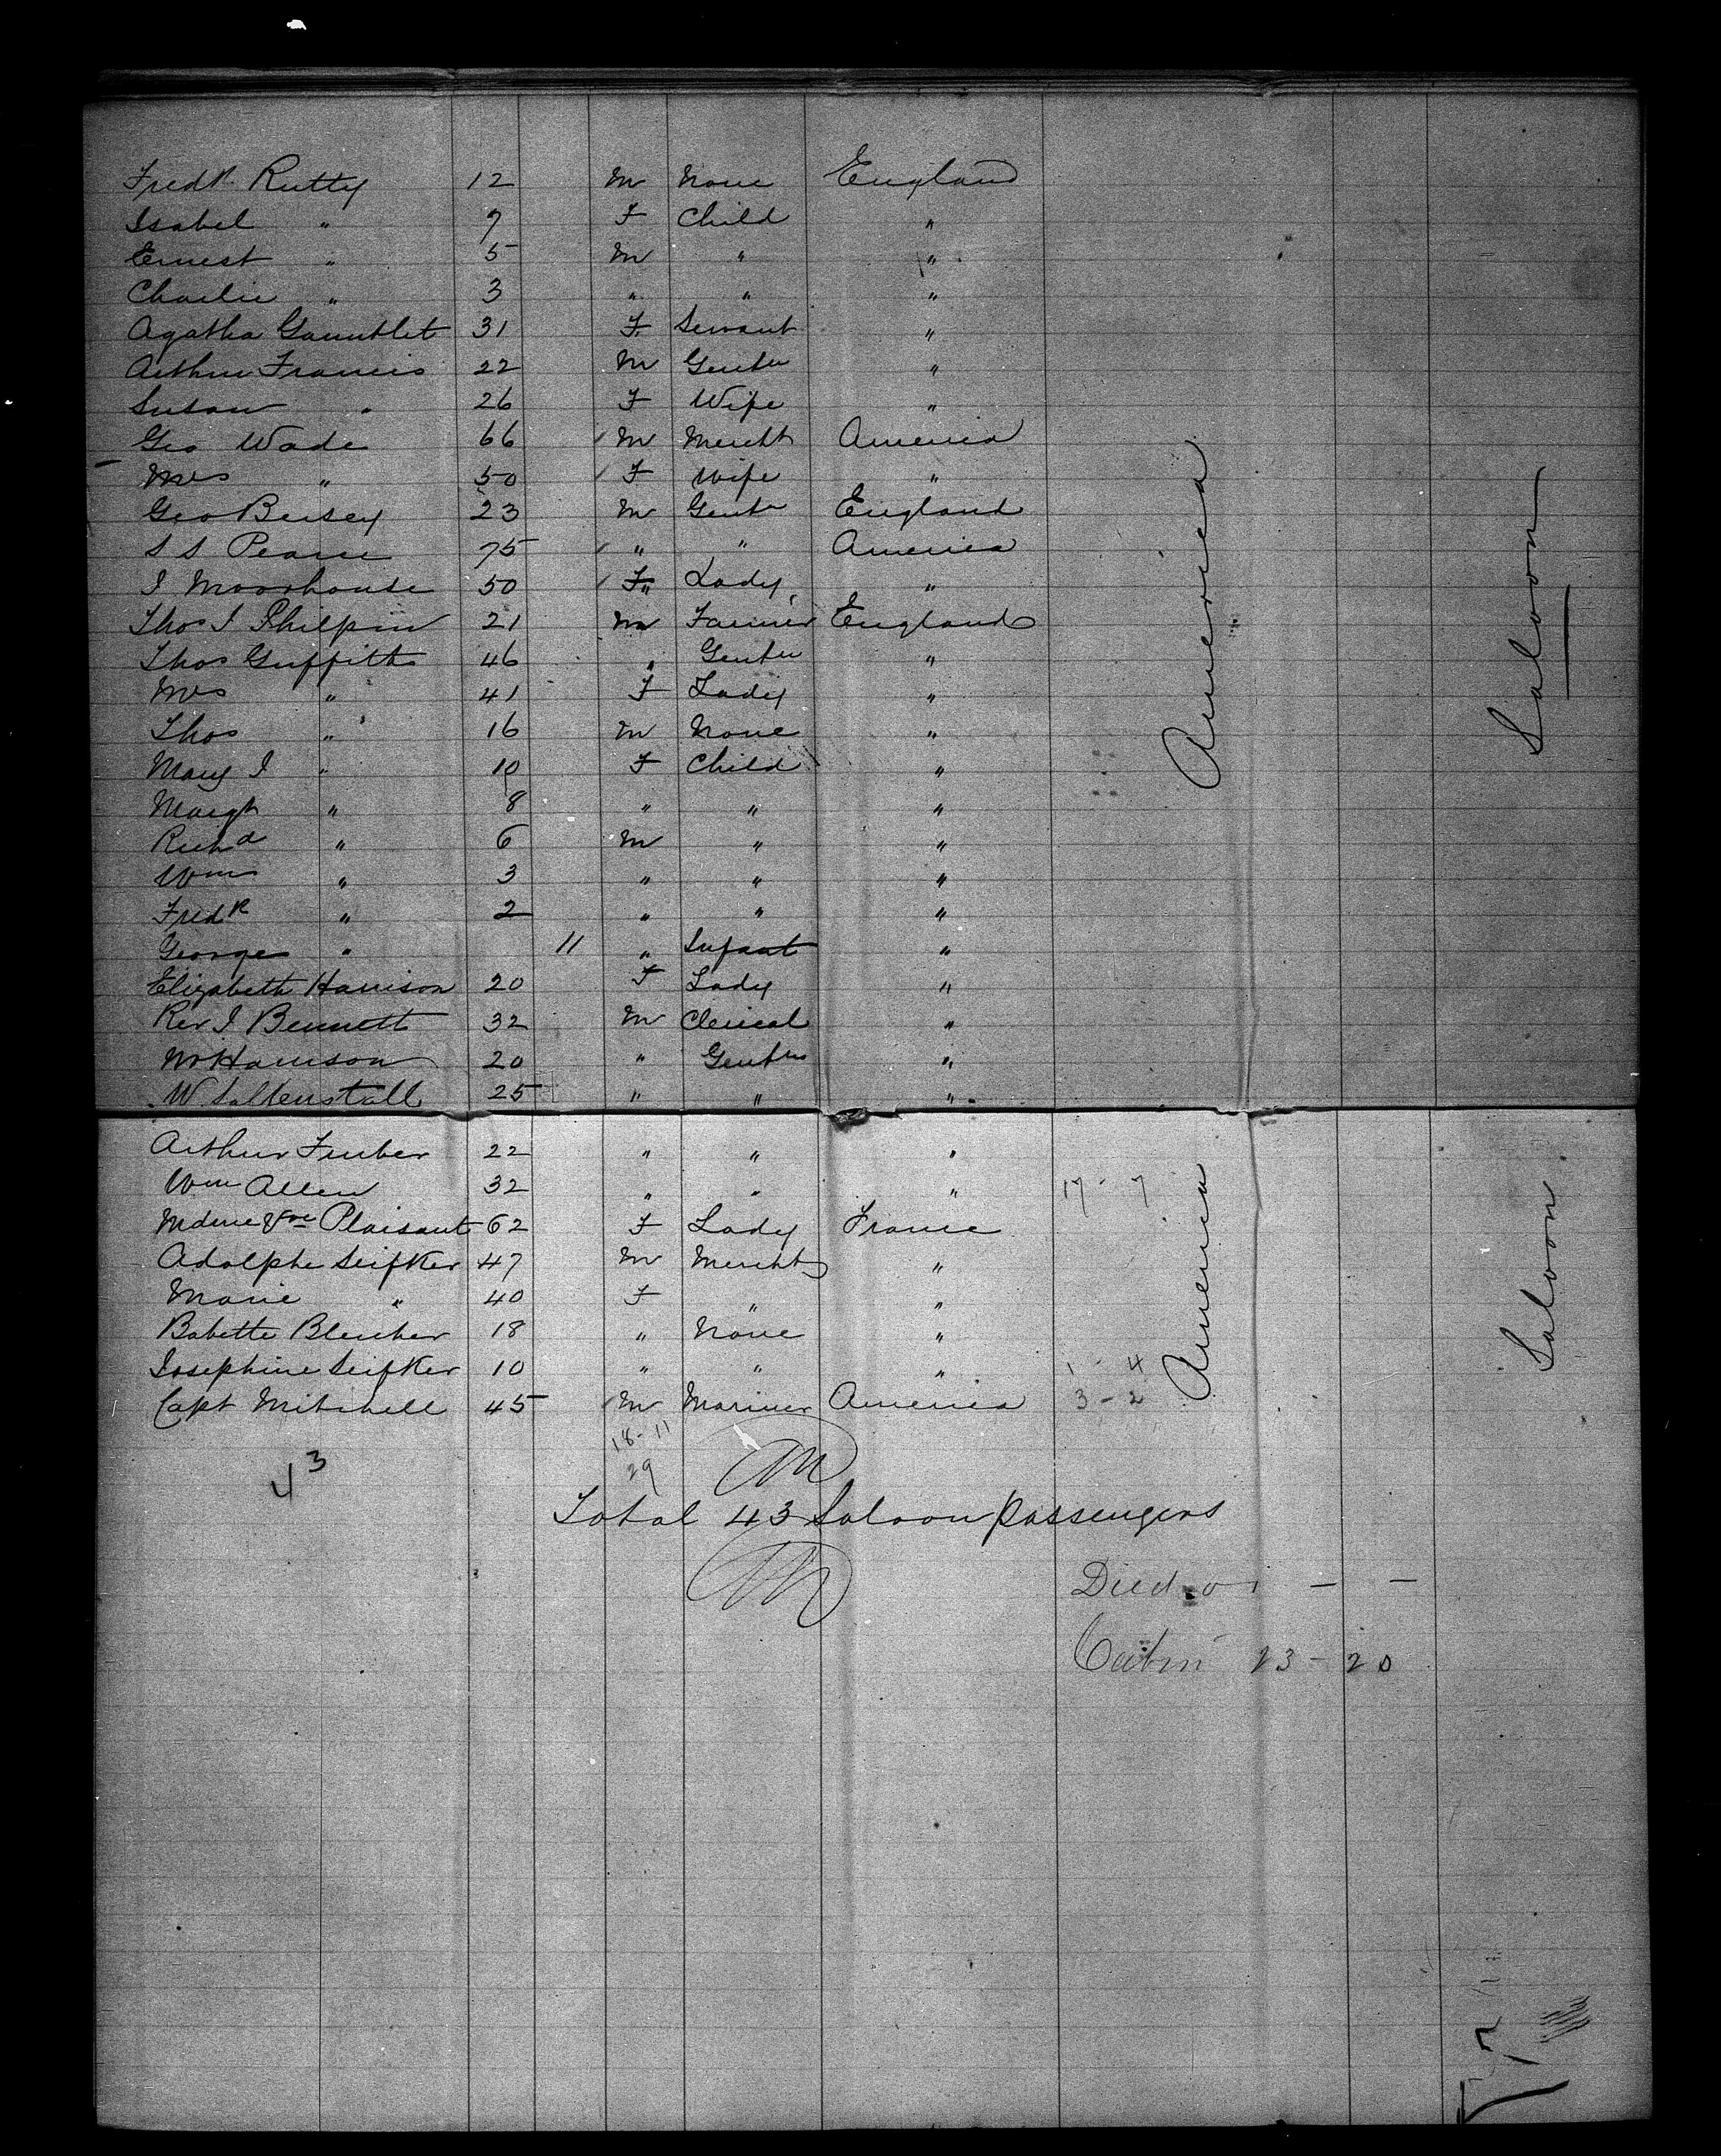 Fredk Rutty 12 M None England
Isabel " 7 F Child "
Ernest " 5 M " "
Charlie " 3 " " "
Agatha Gauntlet 31 F Servant "
Arthur Francis 22 M Gentn "
Susan " 26 F Wife "
Geo Wade 66 M Mercht America
Mrs " 50 F Wife "
Geo Bersey 23 M Gentn England
S S Pearce 75 " " America
J Moorhouse 50 F" Lady "
Thos J Philpin 21 M Farmer England
Thos Griffiths 46 " Gentn "
Mrs " 41 F Lady "
Thos " 16 M None "
Mary J " 10 F Child "
Margt " 8 " " "
Richd " 6 M " "
Wm " 3 " " "
Fredk " 2 " " "
George " 11 " Infant "
Elizabeth Harrison 20 F Lady "
Rev J Bennett 32 M Clerical "
Harrison 20 " Gentn "
W Saltenstall 25 " " "
America
Saloon
Arthur 22 " " "
Wm Allen 32 " " " 17 - 7
Mdme Vve Plaisant 62 F Lady France
Adolphe Seifker 47 M Mercht "
Marie " 40 F " "
Babette Blencher 18 " None "
Josephine Seifker 10 " " " 1 - 4
Capt Mitchell 45 M Mariner America 3 - 2
America
Saloon
18 - 11
29
43
Total 43 Saloon passengers
Died - -
Cabin 23 - 20